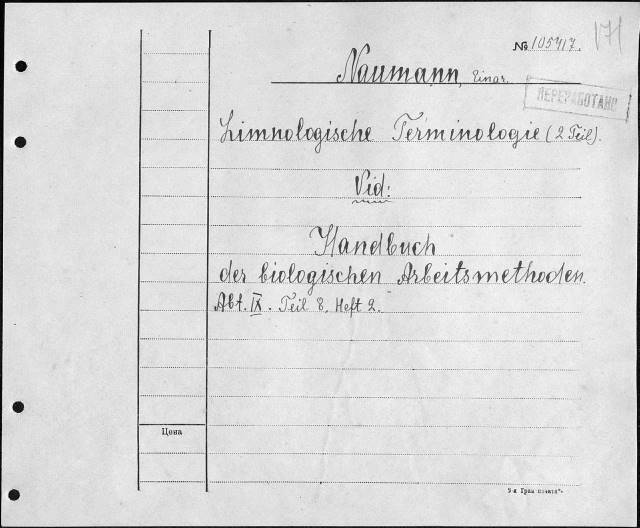 № 105417. 171
Naumann, Einar.
ПЕРЕРАБОТАНО
Limnologische Terminologie (2 Teil).
Vid:
Handbuch
der biologischen Arbeitsmethoden.
Abt. IX. Teil 8, Heft 2.
Цена